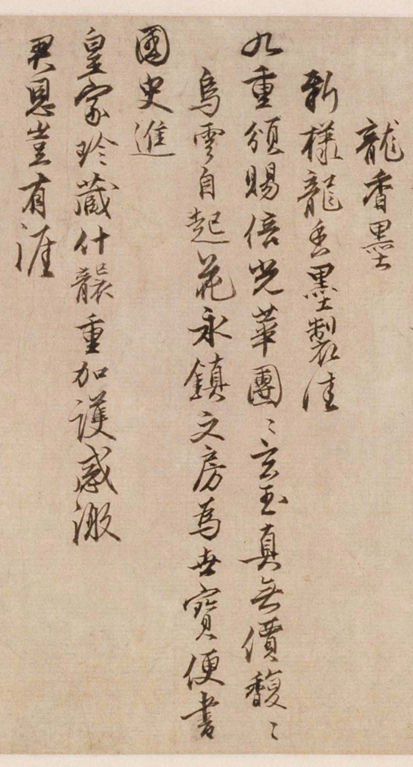 龍香墨
新樣龍香墨製佳
九重頒賜倍光華團〻玄玉真無價馥〻
烏雲自起花永鎮文房為世寶便書
國史進
皇家珍藏什襲重加護感激
君恩豈有涯